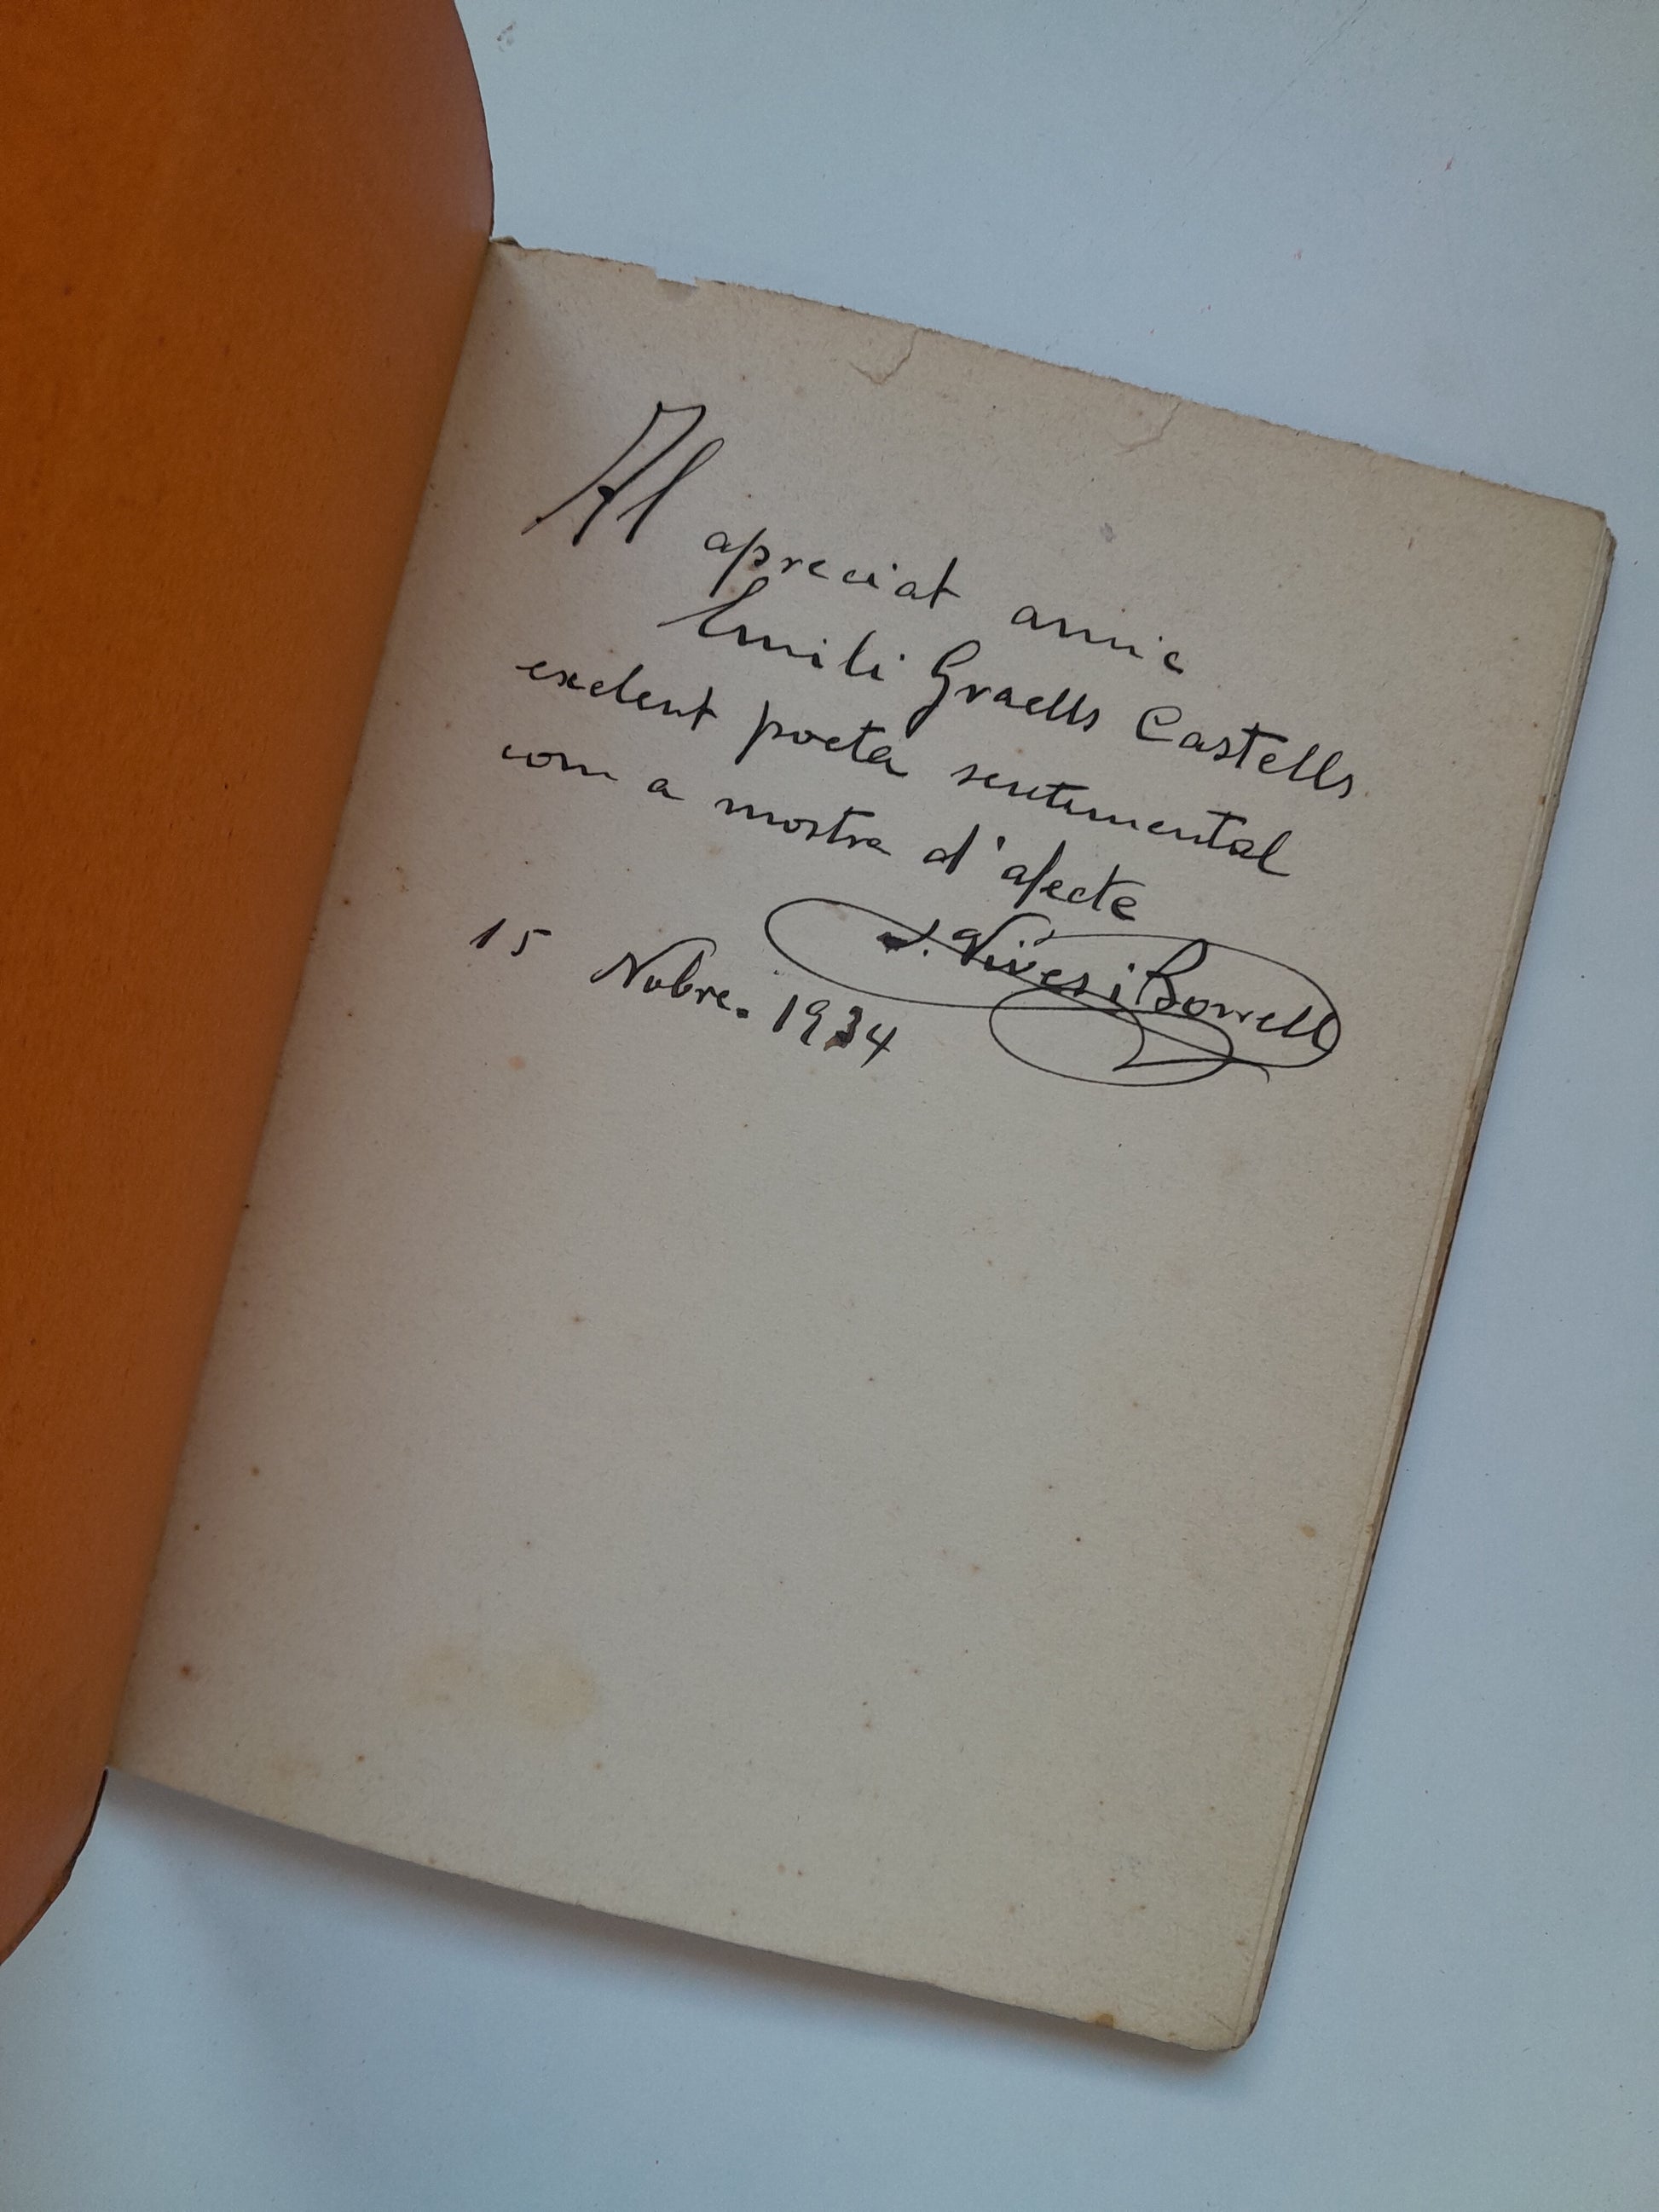 Al apreciat amic
Emili Graells Castells
exelent poeta sentimental
com a mostra d'afecte
J. Vives i Borrell
15 Nobre. 1934